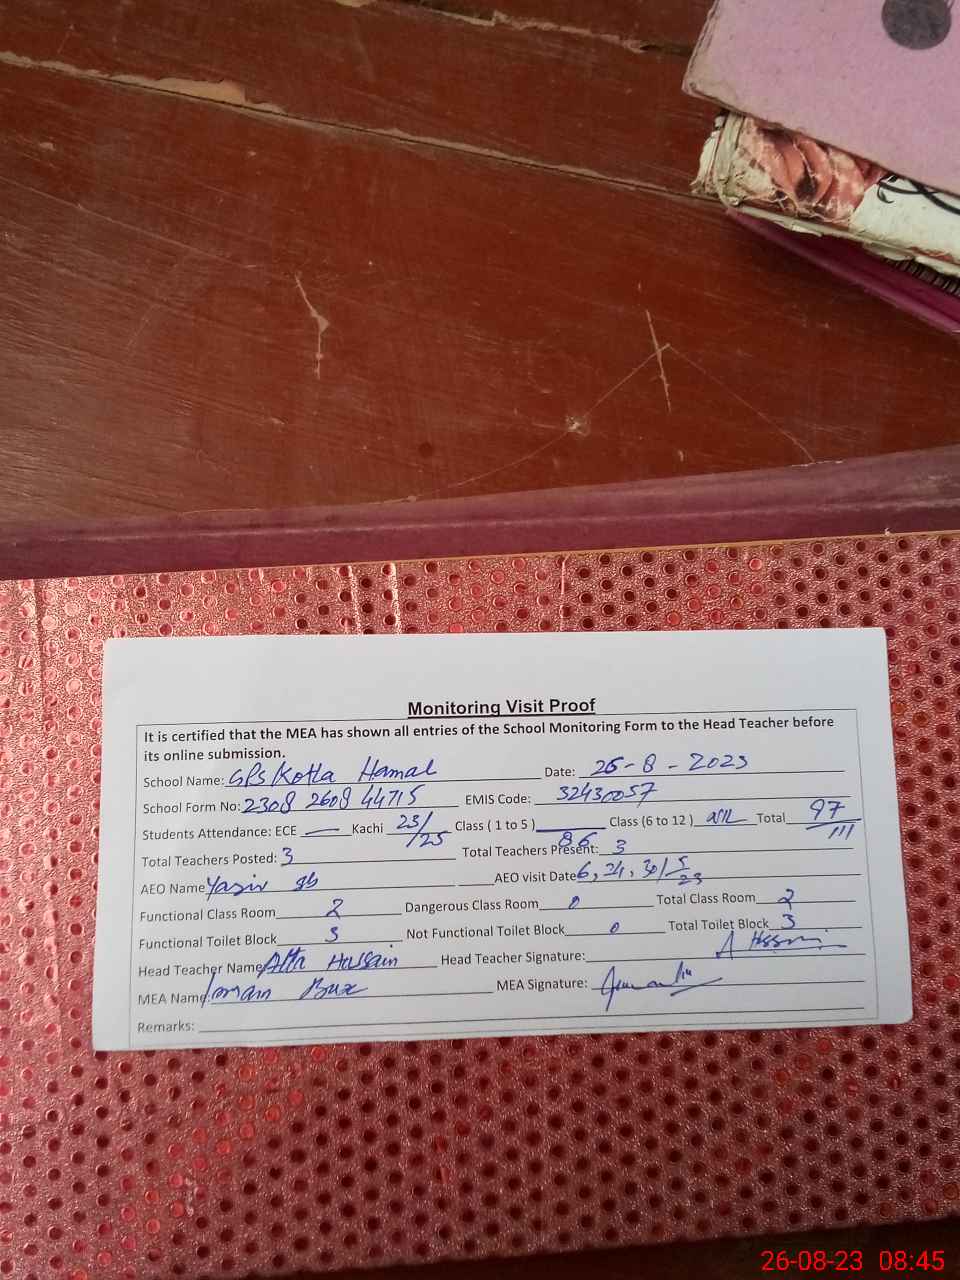 Monitoring Visit Proof
It is certified that the MEA has shown all entries of the School Monitoring Form to the Head Teacher before
its online submission.
School Name: GPS Kotla Hamal Date: 26-8-2023
School Form No: 2308 2608 44715 EMIS Code: 32430057
Students Attendance: ECE — Kachi 23/25 Class ( 1 to 5 ) 86 Class (6 to 12 ) Total 97/111
Total Teachers Posted: 3 Total Teachers Present: 3
AEO Name Yasir AEO visit Date 6, 24, 30/5/23
Functional Class Room 2 Dangerous Class Room 0 Total Class Room 2
Functional Toilet Block 3 Not Functional Toilet Block 0 Total Toilet Block 3
Head Teacher Name Hussain Head Teacher Signature: A Hussain
MEA Name Imam Bux MEA Signature:
Remarks:
26-08-23 08:45